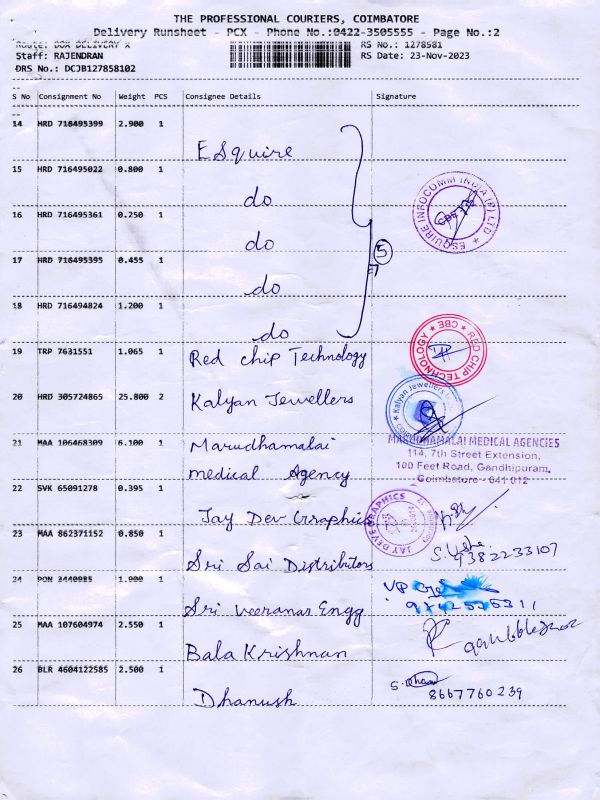 THE PROFESSIONAL COURIERS, COIMBATORE
Delivery Runsheet - PCX - Phone No.:0422-3505555 - Page No.:2
Route: BOX DELIVERY X
RS No.: 1278581
Staff: RAJENDRAN
RS Date: 23-Nov-2023
DRS No.: DCJB127858102
S No Consignment No Weight PCS Consignee Details Signature
14 HRD 716495399 2.900 1
ESquire
15 HRD 716495022 0.800 1
do
16 HRD 716495361 0.250 1
do
17 HRD 716495395 0.455 1
do
18 HRD 716494824 1.200 1
do
5
ESQUIRE INFOCOMM INDIA (P) LTD
19 TRP 7631551 1.065 1 Red chip Technology
RED CHIP TECHNOLOGY ★ CBE ★
20 HRD 305724865 25.800 2 Kalyan Jewellers
Kalyan Jewellers
21 MAA 106468309 6.100 1 Marudhamalai
medical Agency
MARUDHAMALAI MEDICAL AGENCIES
114, 7th Street Extension,
100 Feet Road, Gandhipuram,
Coimbatore - 641 012
22 SVK 65091278 0.395 1
Jay Dev Graphics
JAY DEVE GRAPHICS
23 MAA 862371152 0.850 1
Sri Sai Distributors
S. Usha
9382233107
24 PON 3440985 1.900 1
Sri Veeranar Engg
VP
25 MAA 107604974 2.550 1
Bala Krishnan
26 BLR 4604122585 2.500 1
Dhanush
8667760239